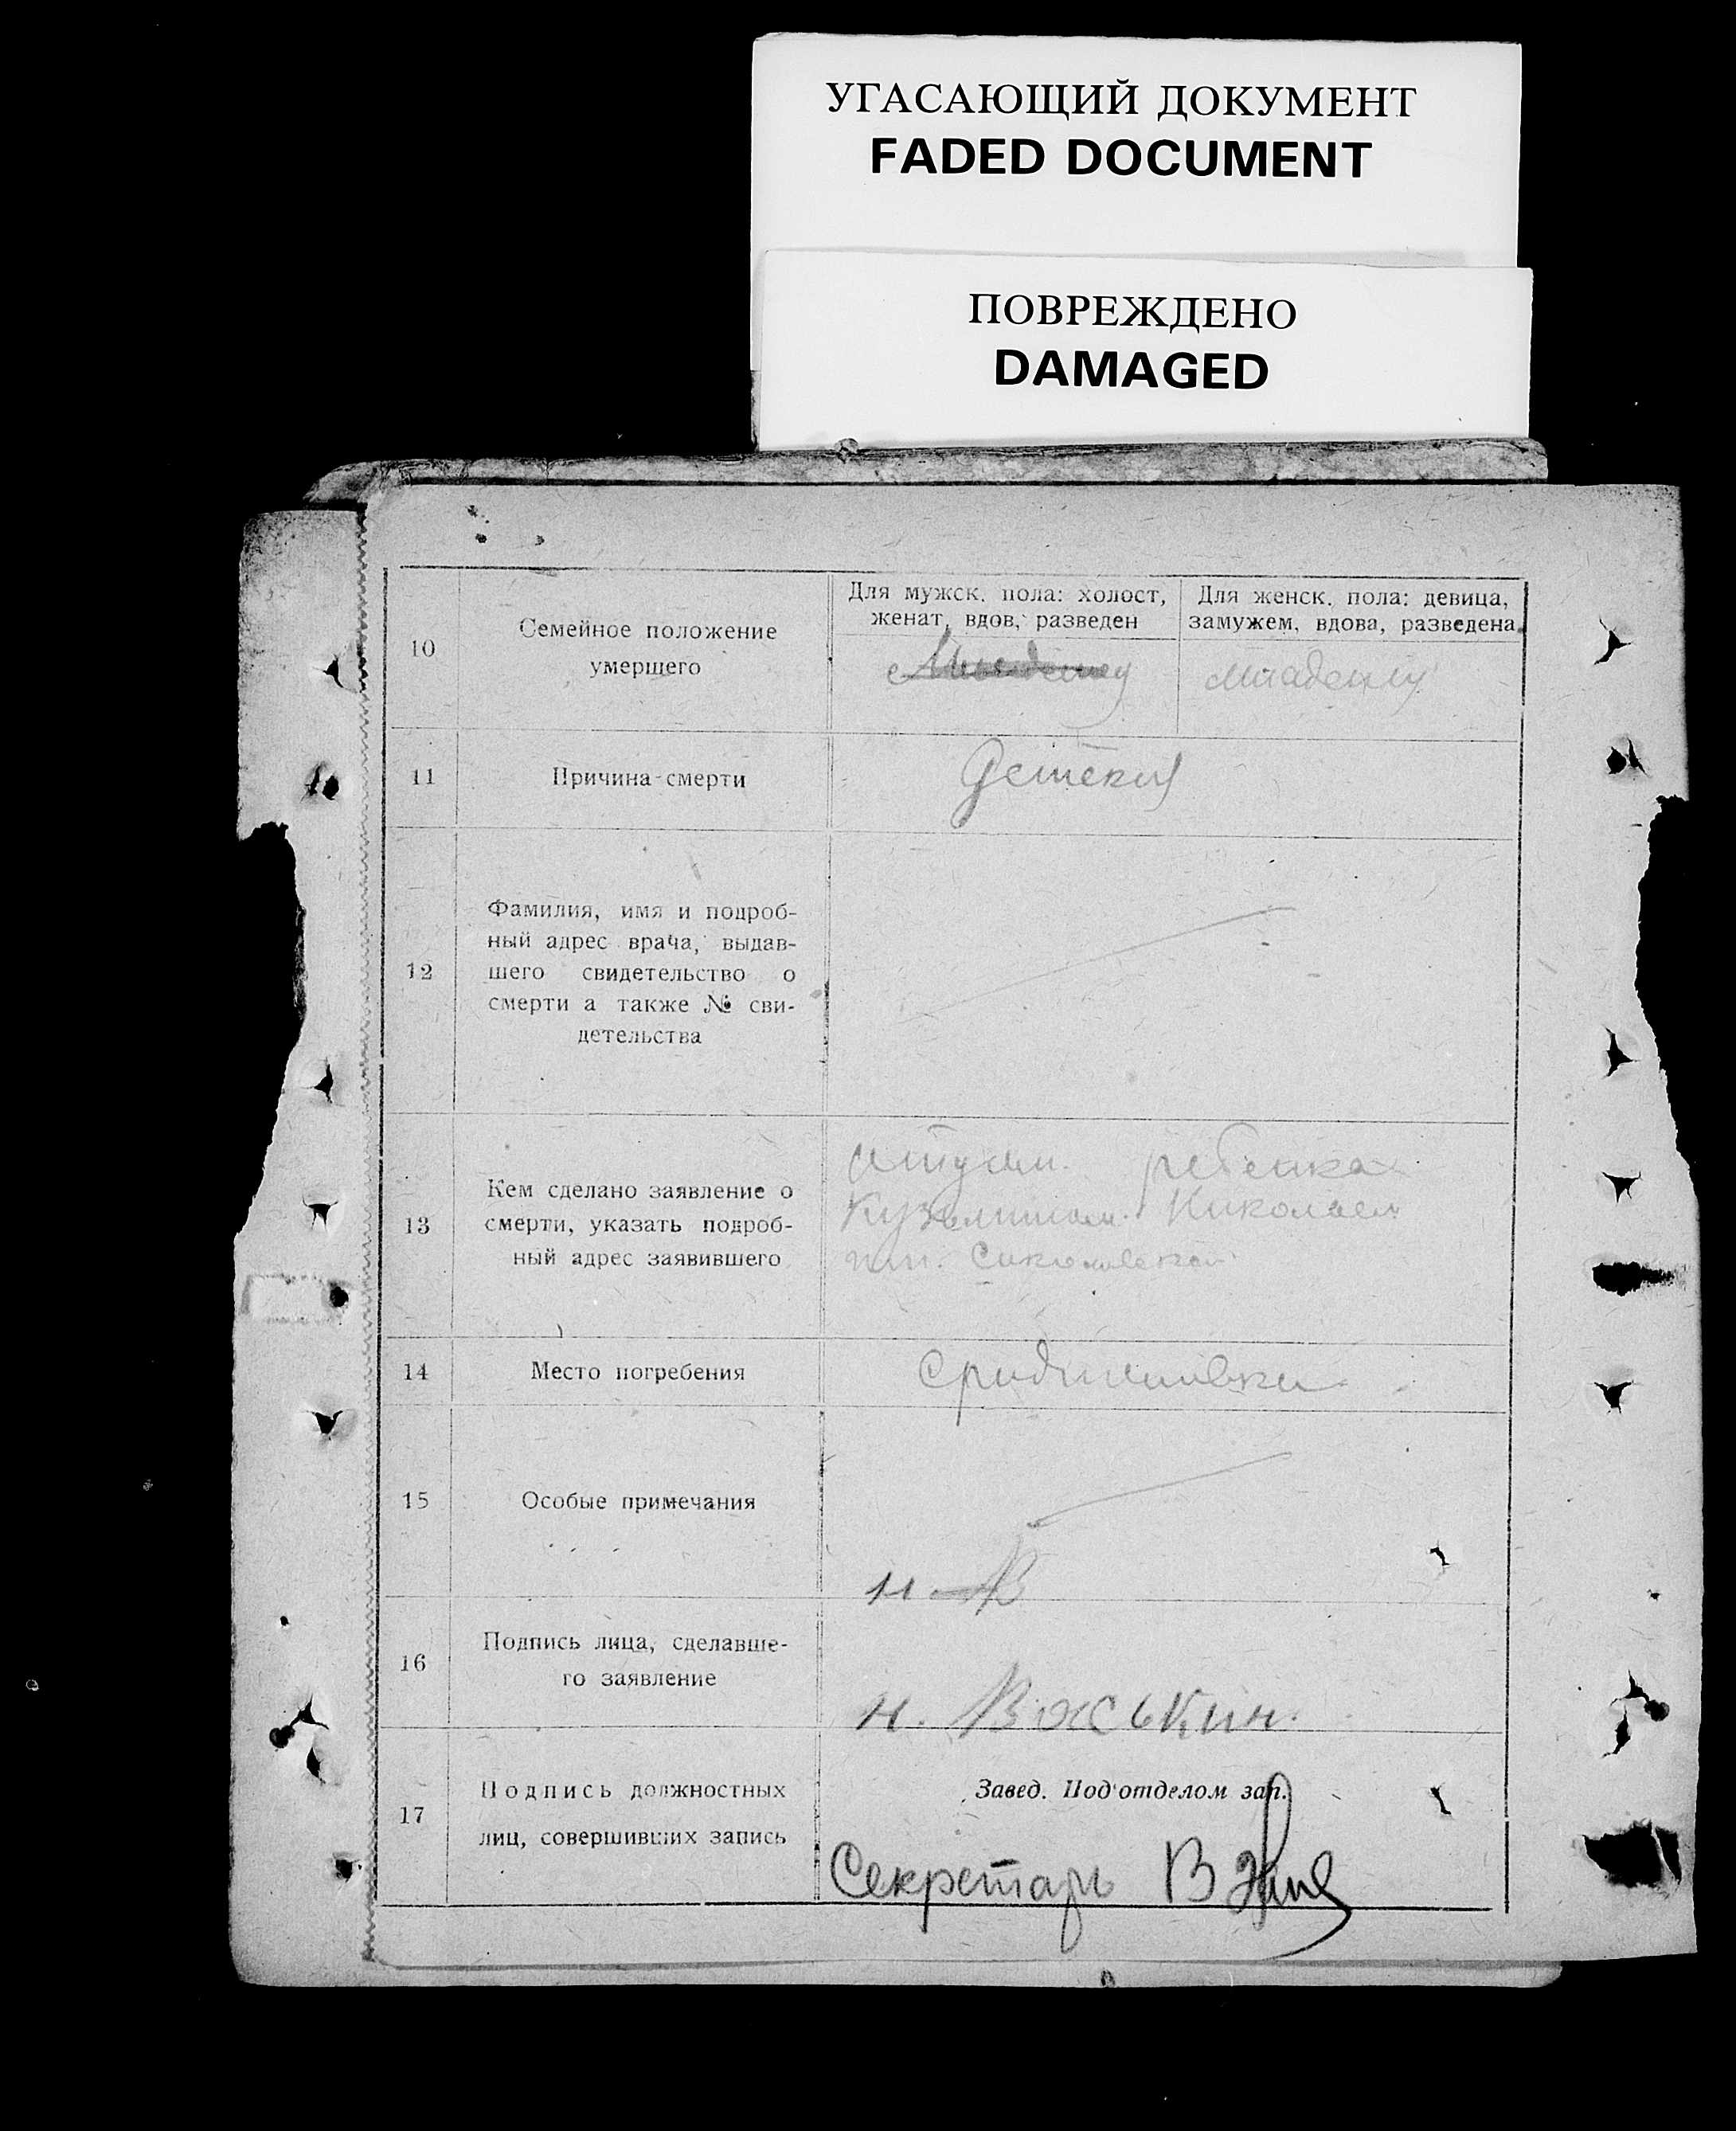 УГАСАЮЩИЙ ДОКУМЕНТ
FADED DOCUMENT
ПОВРЕЖДЕНО
DAMAGED
10
Семейное положение
умершего
Для мужск. пола: холост,
женат, вдов, разведен
Для женск. пола: девица,
замужем, вдова, разведена
11
Причина смерти
12
Фамилия, имя и подроб-
ный адрес врача, выдав-
шего свидетельство о
смерти а также № сви-
детельства
13
Кем сделано заявление о
смерти, указать подроб-
ный адрес заявившего
ребенка
Николаем
14
Место погребения
15
Особые примечания
16
Подпись лица, сделавше-
го заявление
Н. Васькин.
17
Подпись должностных
лиц, совершивших запись
Завед. Подотделом зап.
Секретарь В